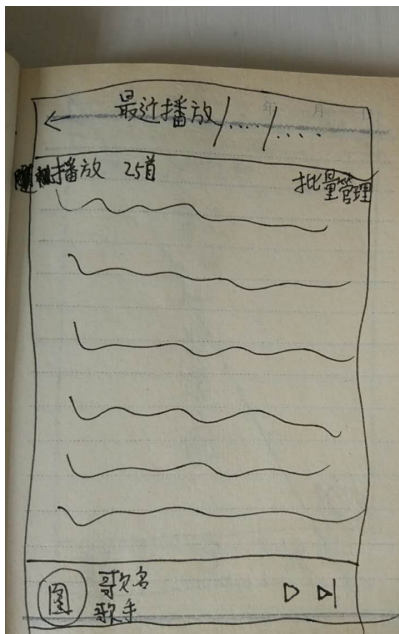 ← 最近播放/..../....
随机播放 25首 批量管理
图 歌名
歌手